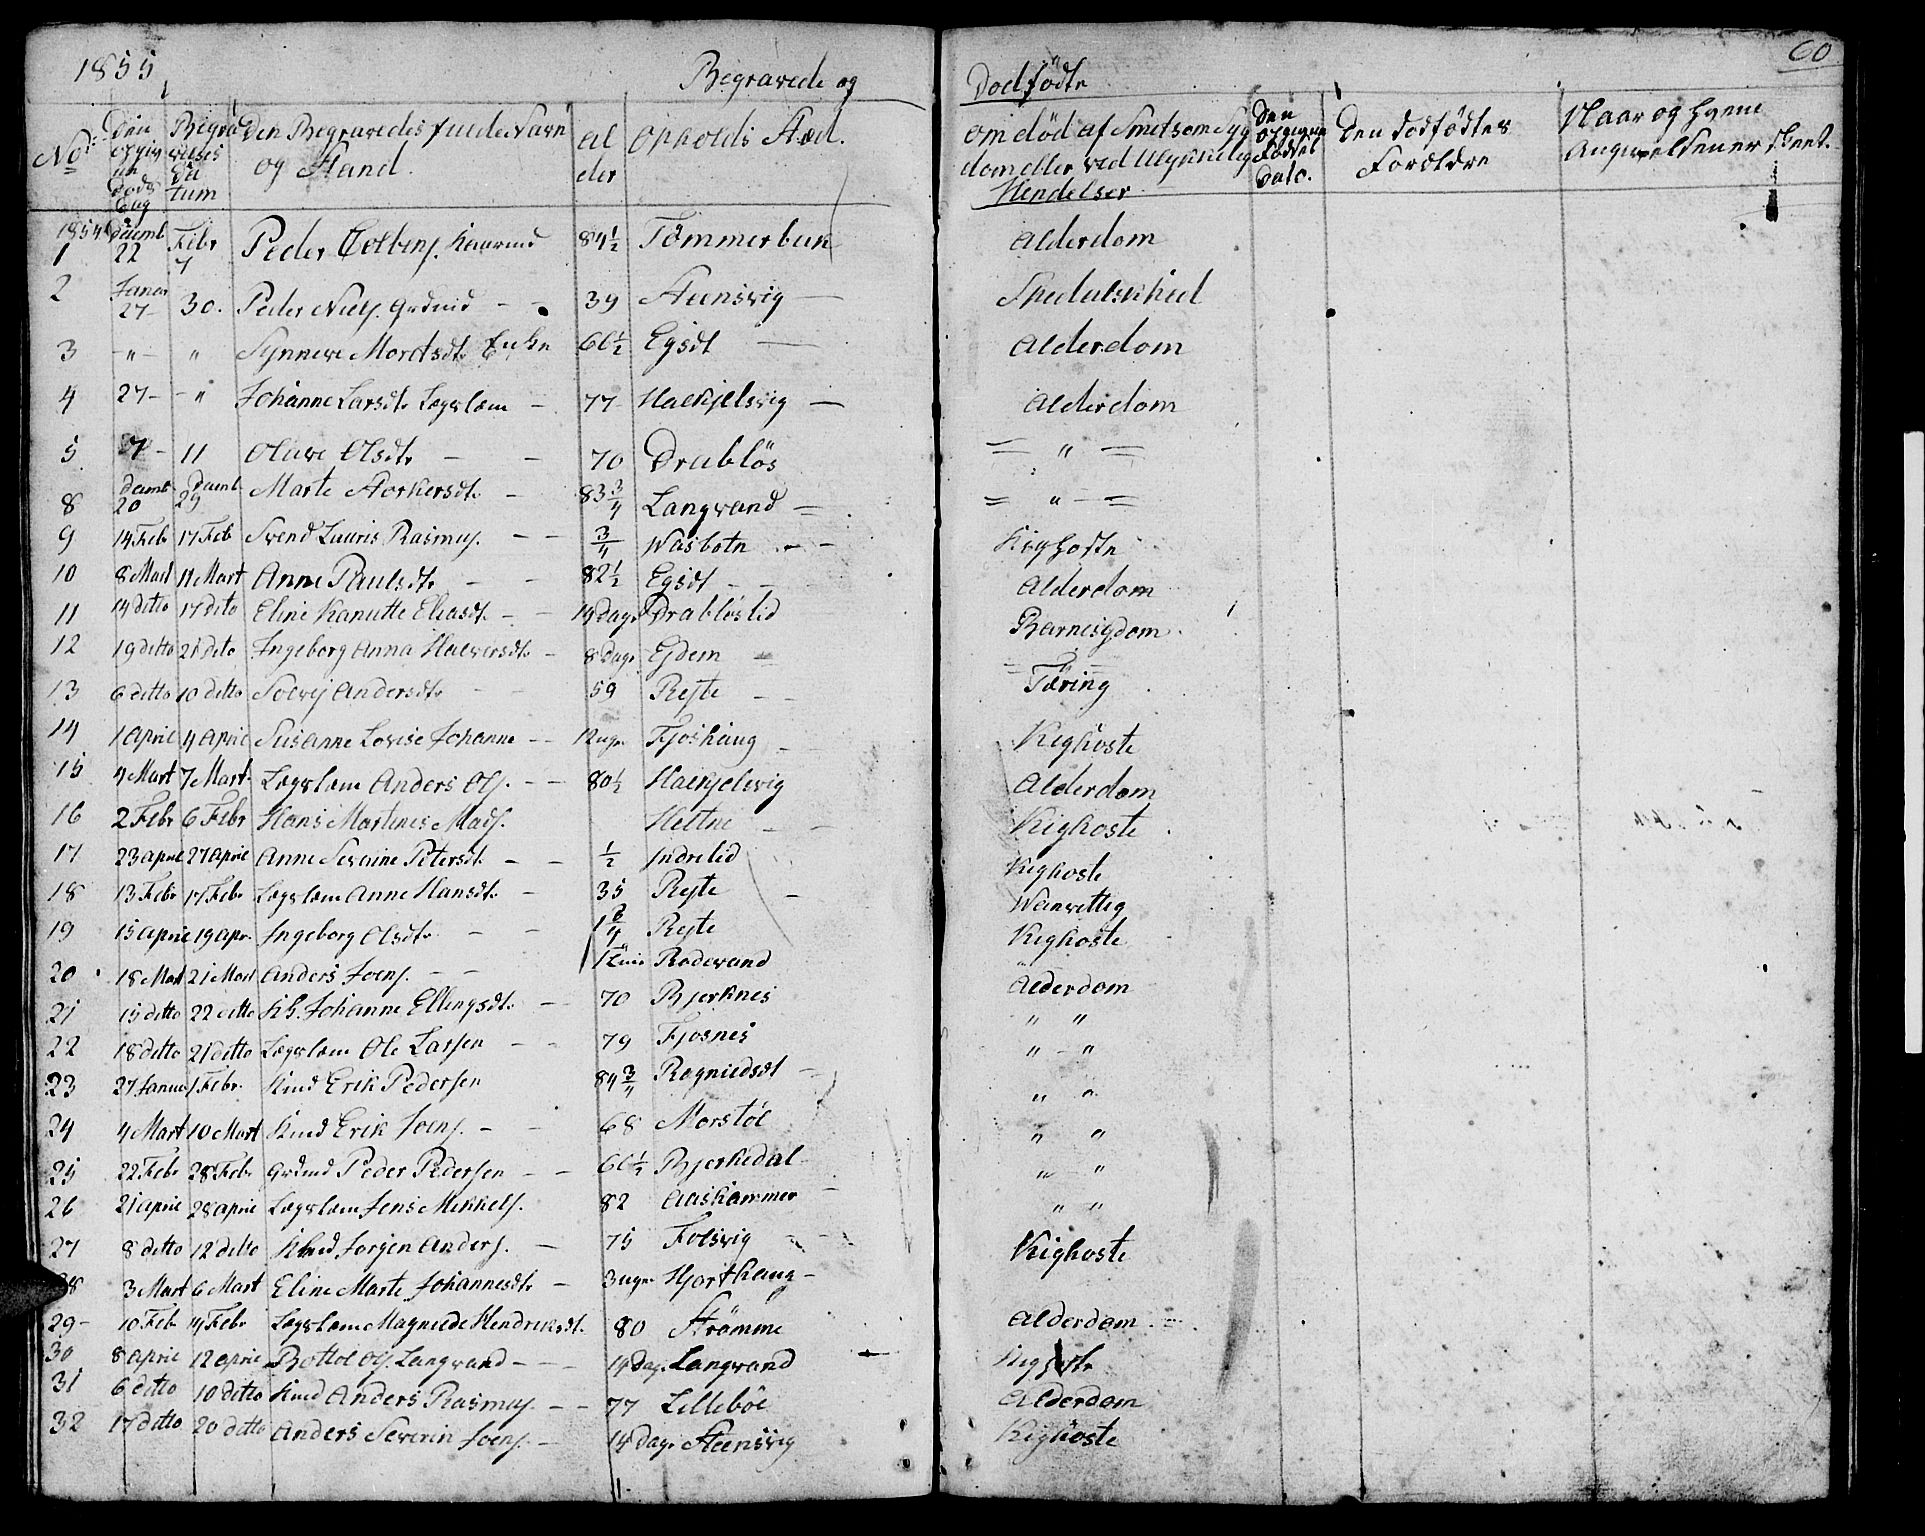 1855 Begravede og Dodfödte 60
No Den opgivne Döds Dag Begravelses Datum Den Begravedes fulde Navn og Stand. Alder Opholds Stæd. Om död af Smetsom Sygdom eller ved Ulykkelig Hendelser Den opgivne Födsel Dato. Den dodfödtes Foreldre Naar og hvem Anmeldsen er skeet.
1 1854 Decemb 22 Febr 7 Peder Colbens. Kaarmd 84½ Tömmerbuk Alderdom
2 Januar 27 30. Peder Niels. Grdmd 39 Steensvig Spedalskhed
3 " " Synneve Mordtsdtr Enke 66½ Egsdt Alderdom
4 27 " Johanne Larsdtr Lægslem 77 Halkjelsvig Alderdom
5 7 11 Oluve Olsdtr 70 Drablös "
8 Decmb 20 Decmb 29 Marte Storkersdtr 83¾ Langvand "
9 14 Febr 17 Feb Svend Lauris Rasmus. ¾ Wasbotn Kighoste
10 8 Mart 11 Mart Anne Paulsdtr 82½ Egsdt Alderdom
11 14 ditto 17 dito Eline Kanutte Eliasdt. 14 Dage Drabløslid Barnesygdom.
12 19 ditto 21 dito Ingeborg Anna Halversdtr 8 Dage Ejdem
13 6 ditto 10 ditto Solvej Andersdtr 59 Rejte Tæring
14 1 April 4 April Susanne Lovise Johanne 12 uger Fjoshaug Kighoste
15 4 Mart 7 Mart Lægslem Anders Ols. 80½ Halkjelsvig Alderdom
16 2 Febr 6 Febr Hans Martines Mads. Heltne Kighoste
17 23 April 27 April Anne Sevrine Petersdt. ½ Indrelid Kighoste
18 13 Febr 17 Febr Lægslem Anne Hansdtr 35 Rejte Wanvettig
19 15 April 19 Apr. Ingeborg Olsdtr Rejte Kighoste
20 18 Mart 21 Mart Anders Joens. Rodevand Alderdom
21 15 ditto 22 ditto Kh. Johanne Ellingsdtr 70 Bjerknes " "
22 18 ditto 21 ditto Lægslem Ole Larsen 79 Fjosnes " "
23 27 Januar 1 Febr. Kmd Erik Pedersen 84¾ Rogniedsdt " "
24 4 Mart 10 Mart Kmd Erik Joens. 68 Morstöl " "
25 22 Febr 28 Febr Grdmd Peder Pedersen 66½ Bjerkedal " "
26 21 April 28 April Lægslem Jens Mikkels. 82 Aaskammer " "
27 8 ditto 12 ditto Kmd Jorgen Anders. 75 Folsvig Kighoste
28 3 Mart 6 Mart Eline Marte Johannesdtr 3 uger Hjorthaug
29 10 Feb 14 Febr Lægslem Magnilde Hendriksdt. 80 Strömme Alderdom
30 8 April 12 April Bottol Ols. Langvand 14 Dag. Langvand Kighoste
31 6 ditto 10 ditto Kmd Anders Rasmus. 77 Lilleböe Alderdom
32 17 ditto 20 ditto Anders Severin Joens. 14 Dage Steensvig Kighoste